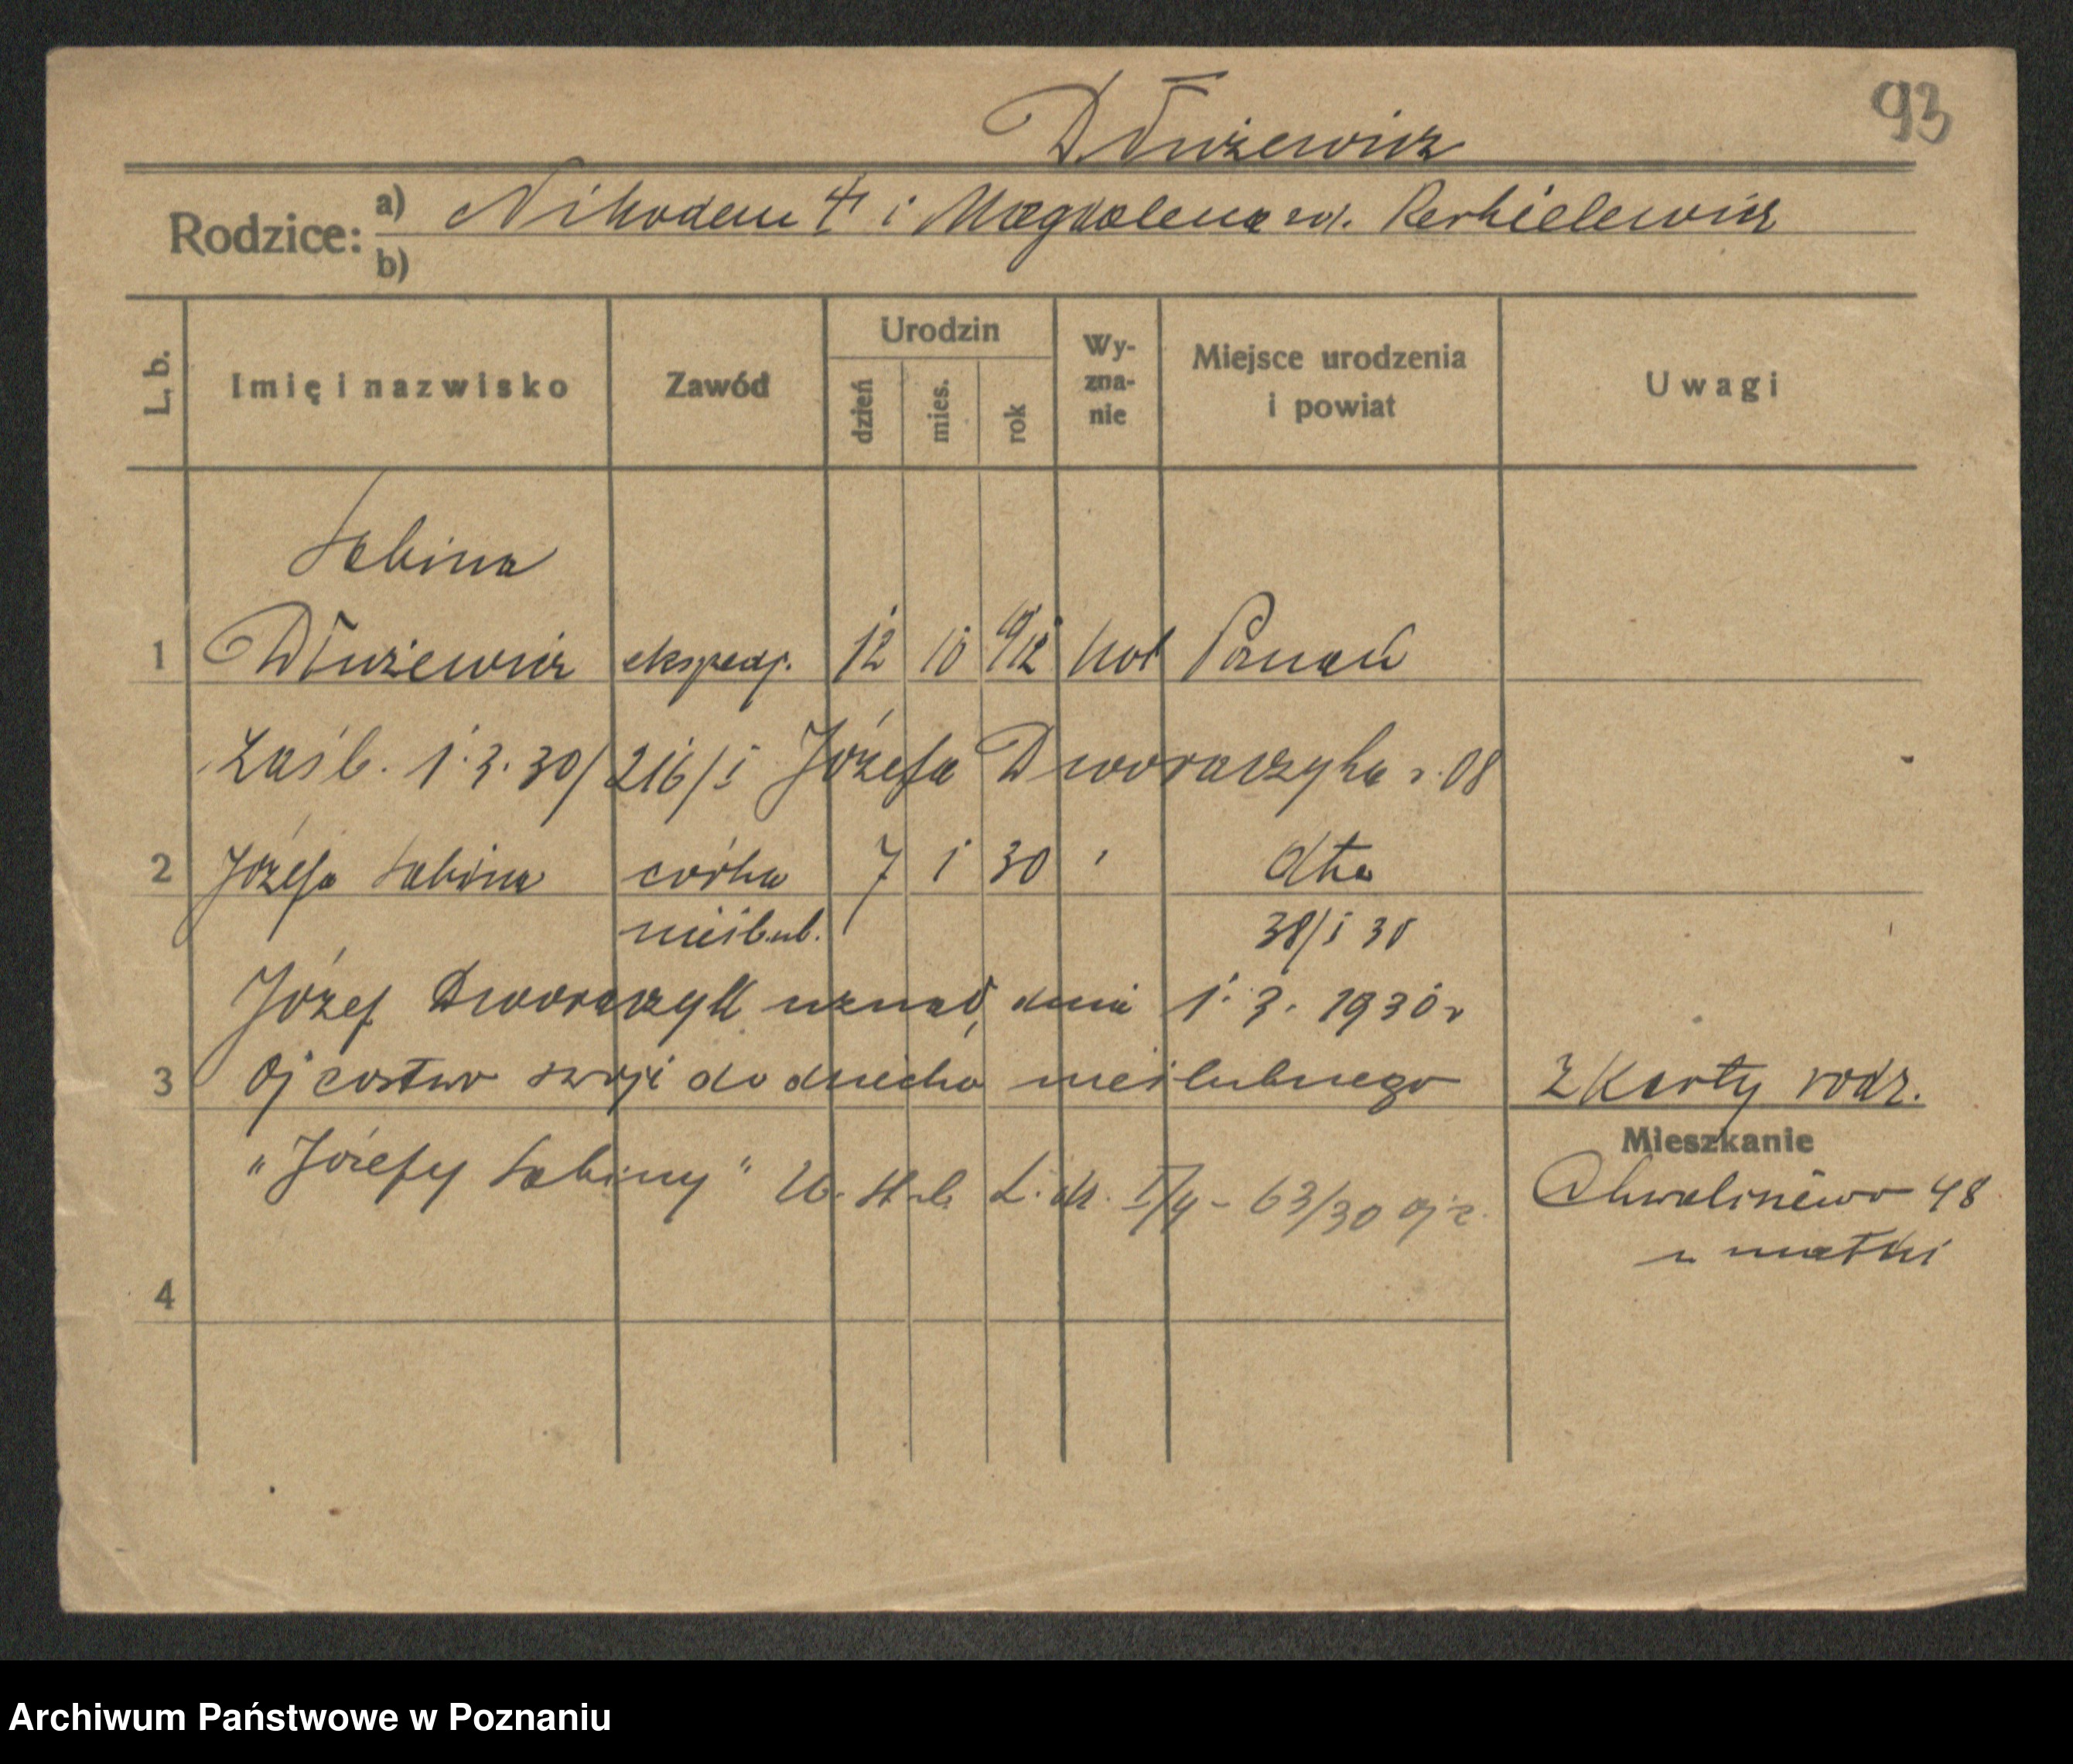 93
Dłużewicz
Rodzice: a) Nikodem i Magdalena rod. Perkielewicz
b)
L. b. Imię i nazwisko Zawód Urodzin dzień mies. rok Wy-zna-nie Miejsce urodzenia i powiat Uwagi
Sabina
1 Dłużewicz ekspedj. 12 10 1912 kat Poznań
Zaśl. 1.3.30/216/I Józefa Dworaczyka r. 08
2 Józefa Sabina córka 7 1 30 " dto
nieślub. 38/I 30
Józef Dworaczyk uznał dnia 1.3.1930 r
3 Ojcostwo swoje do dziecka nieślubnego Z Karty rodz.
Mieszkanie
"Józefy Sabiny" 63/30 Chwaliszewo 48
u matki
4
Archiwum Państwowe w Poznaniu